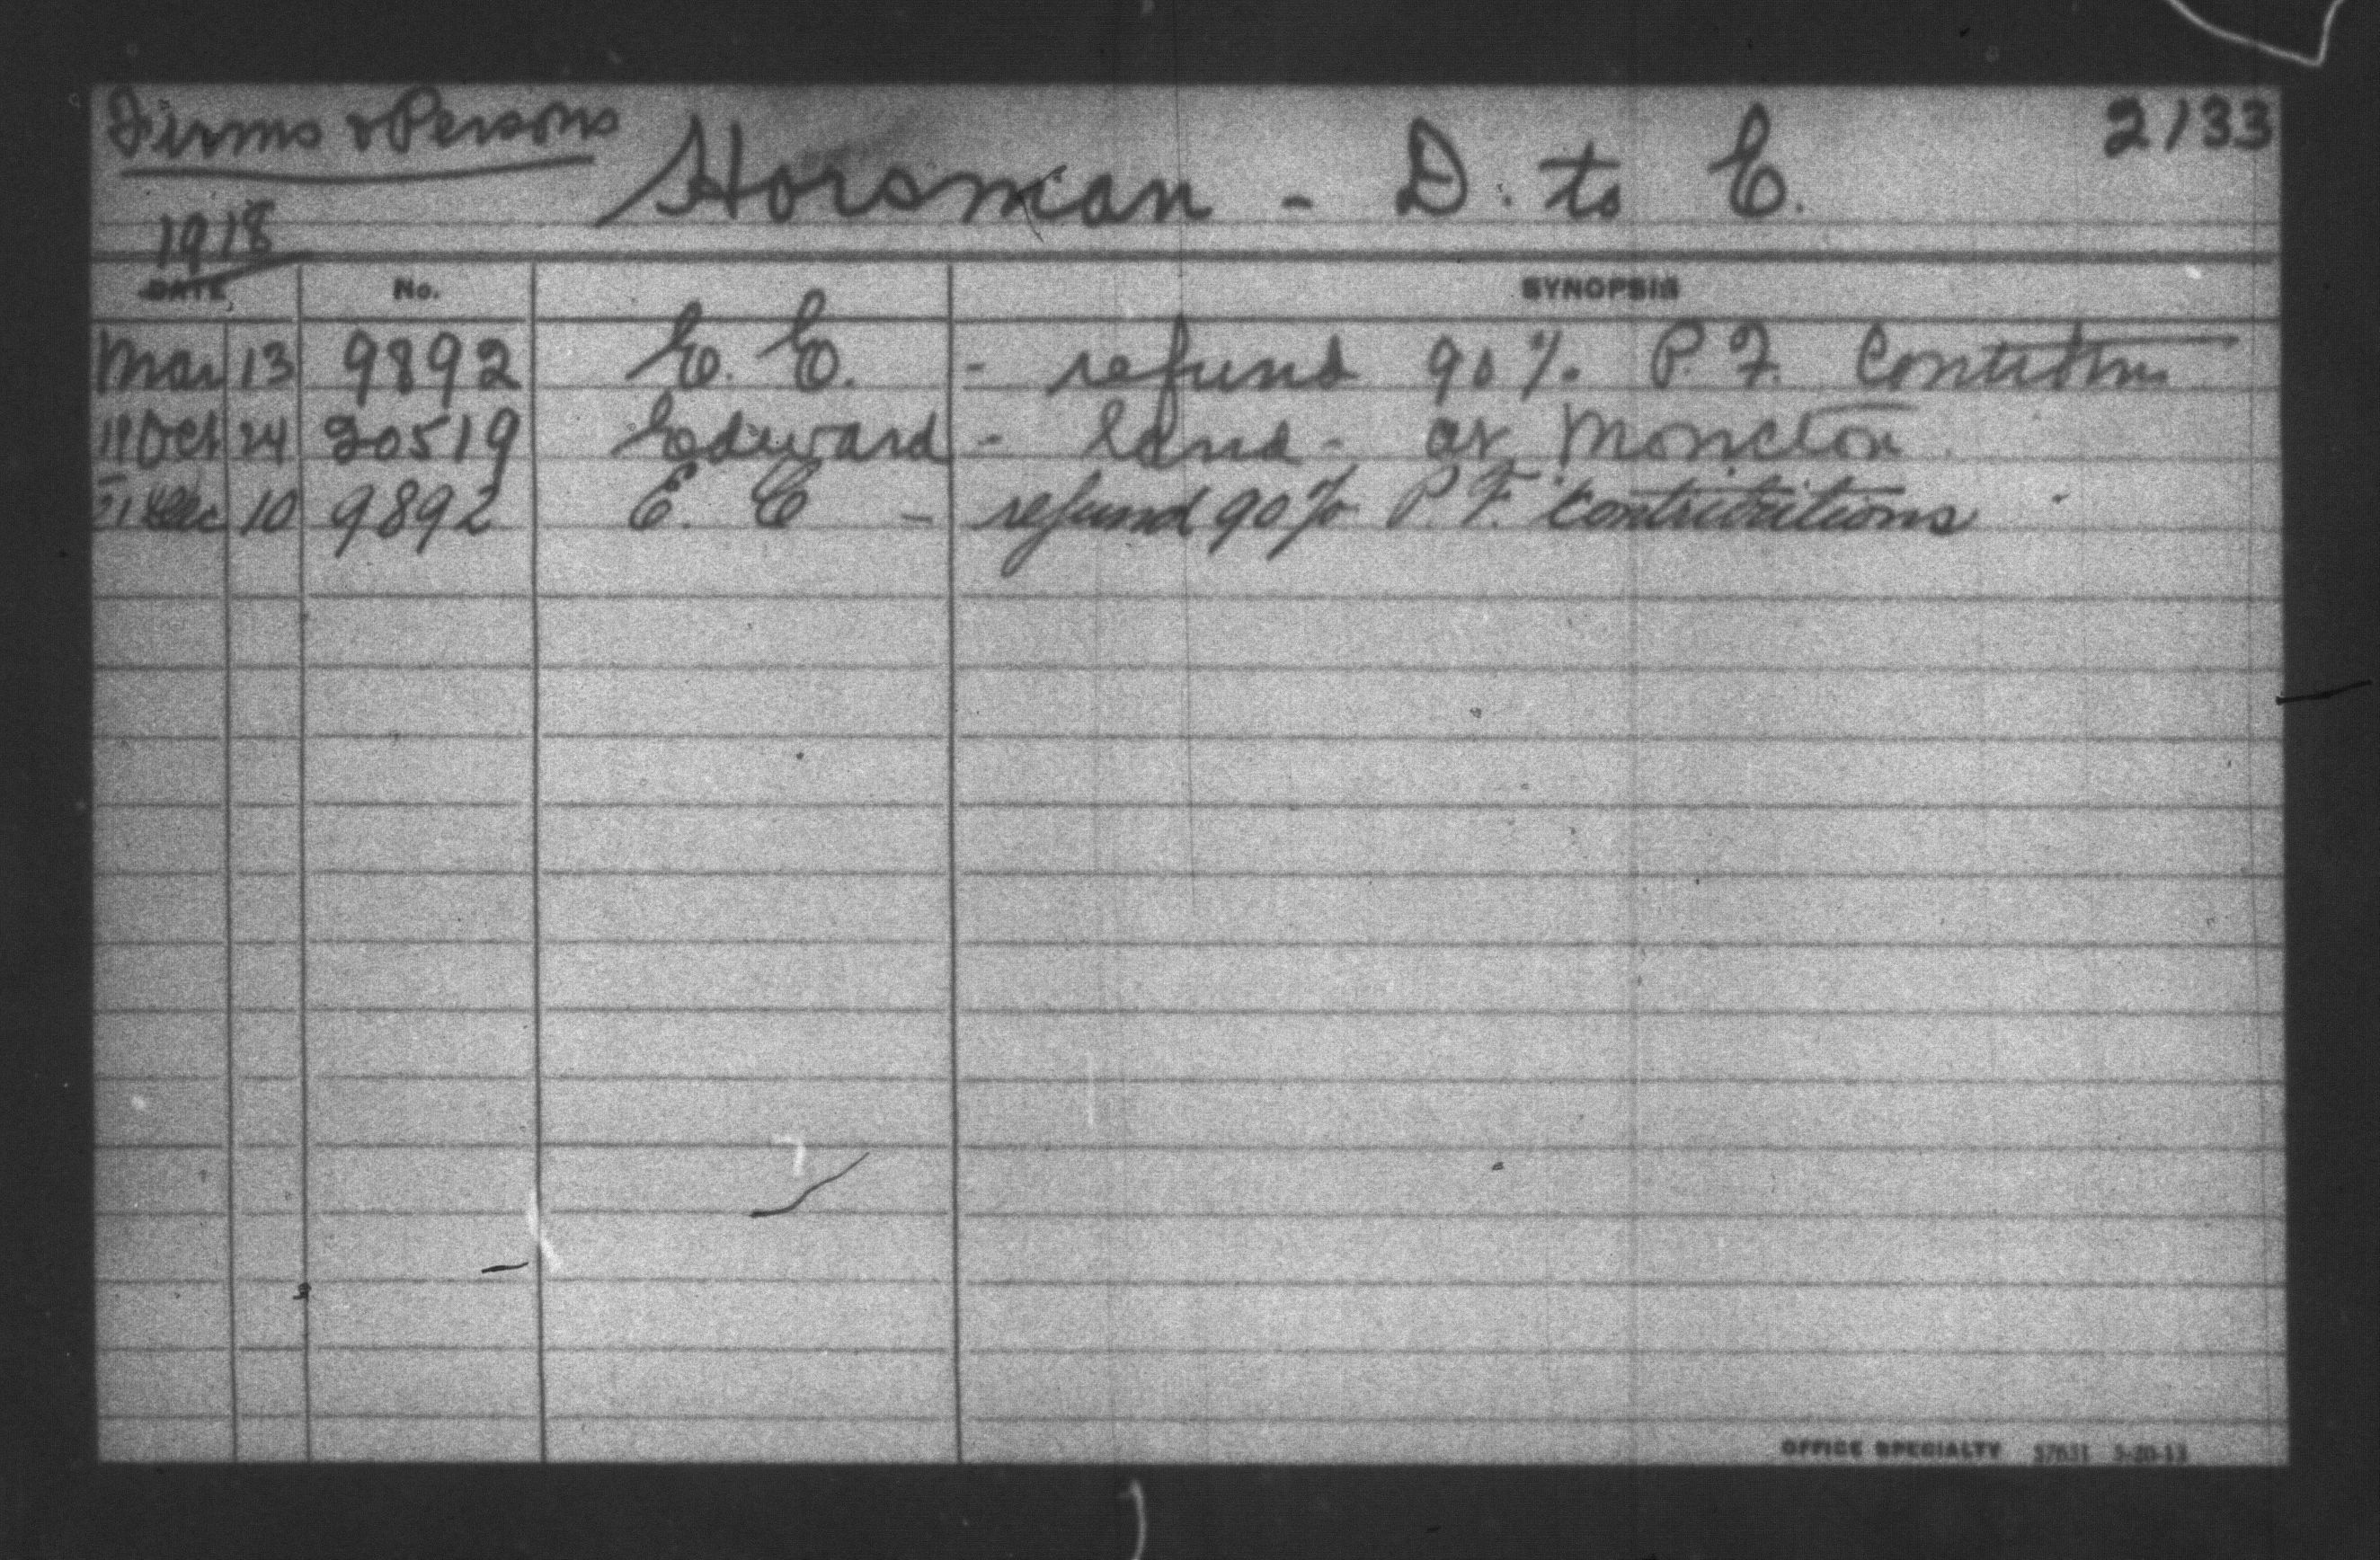 Firms & Persons
Horsman - D. to E.
2133
1918
DATE No. SYNOPSIS
Mar 13 9892 E. E. - refund 90% P. F. Contributns
19 Oct 24 20519 Edward - land - at Moncton
21 Dec 10 9892 E. E - refund 90% P. F. Contributions
OFFICE SPECIALTY 57631 5-20-13